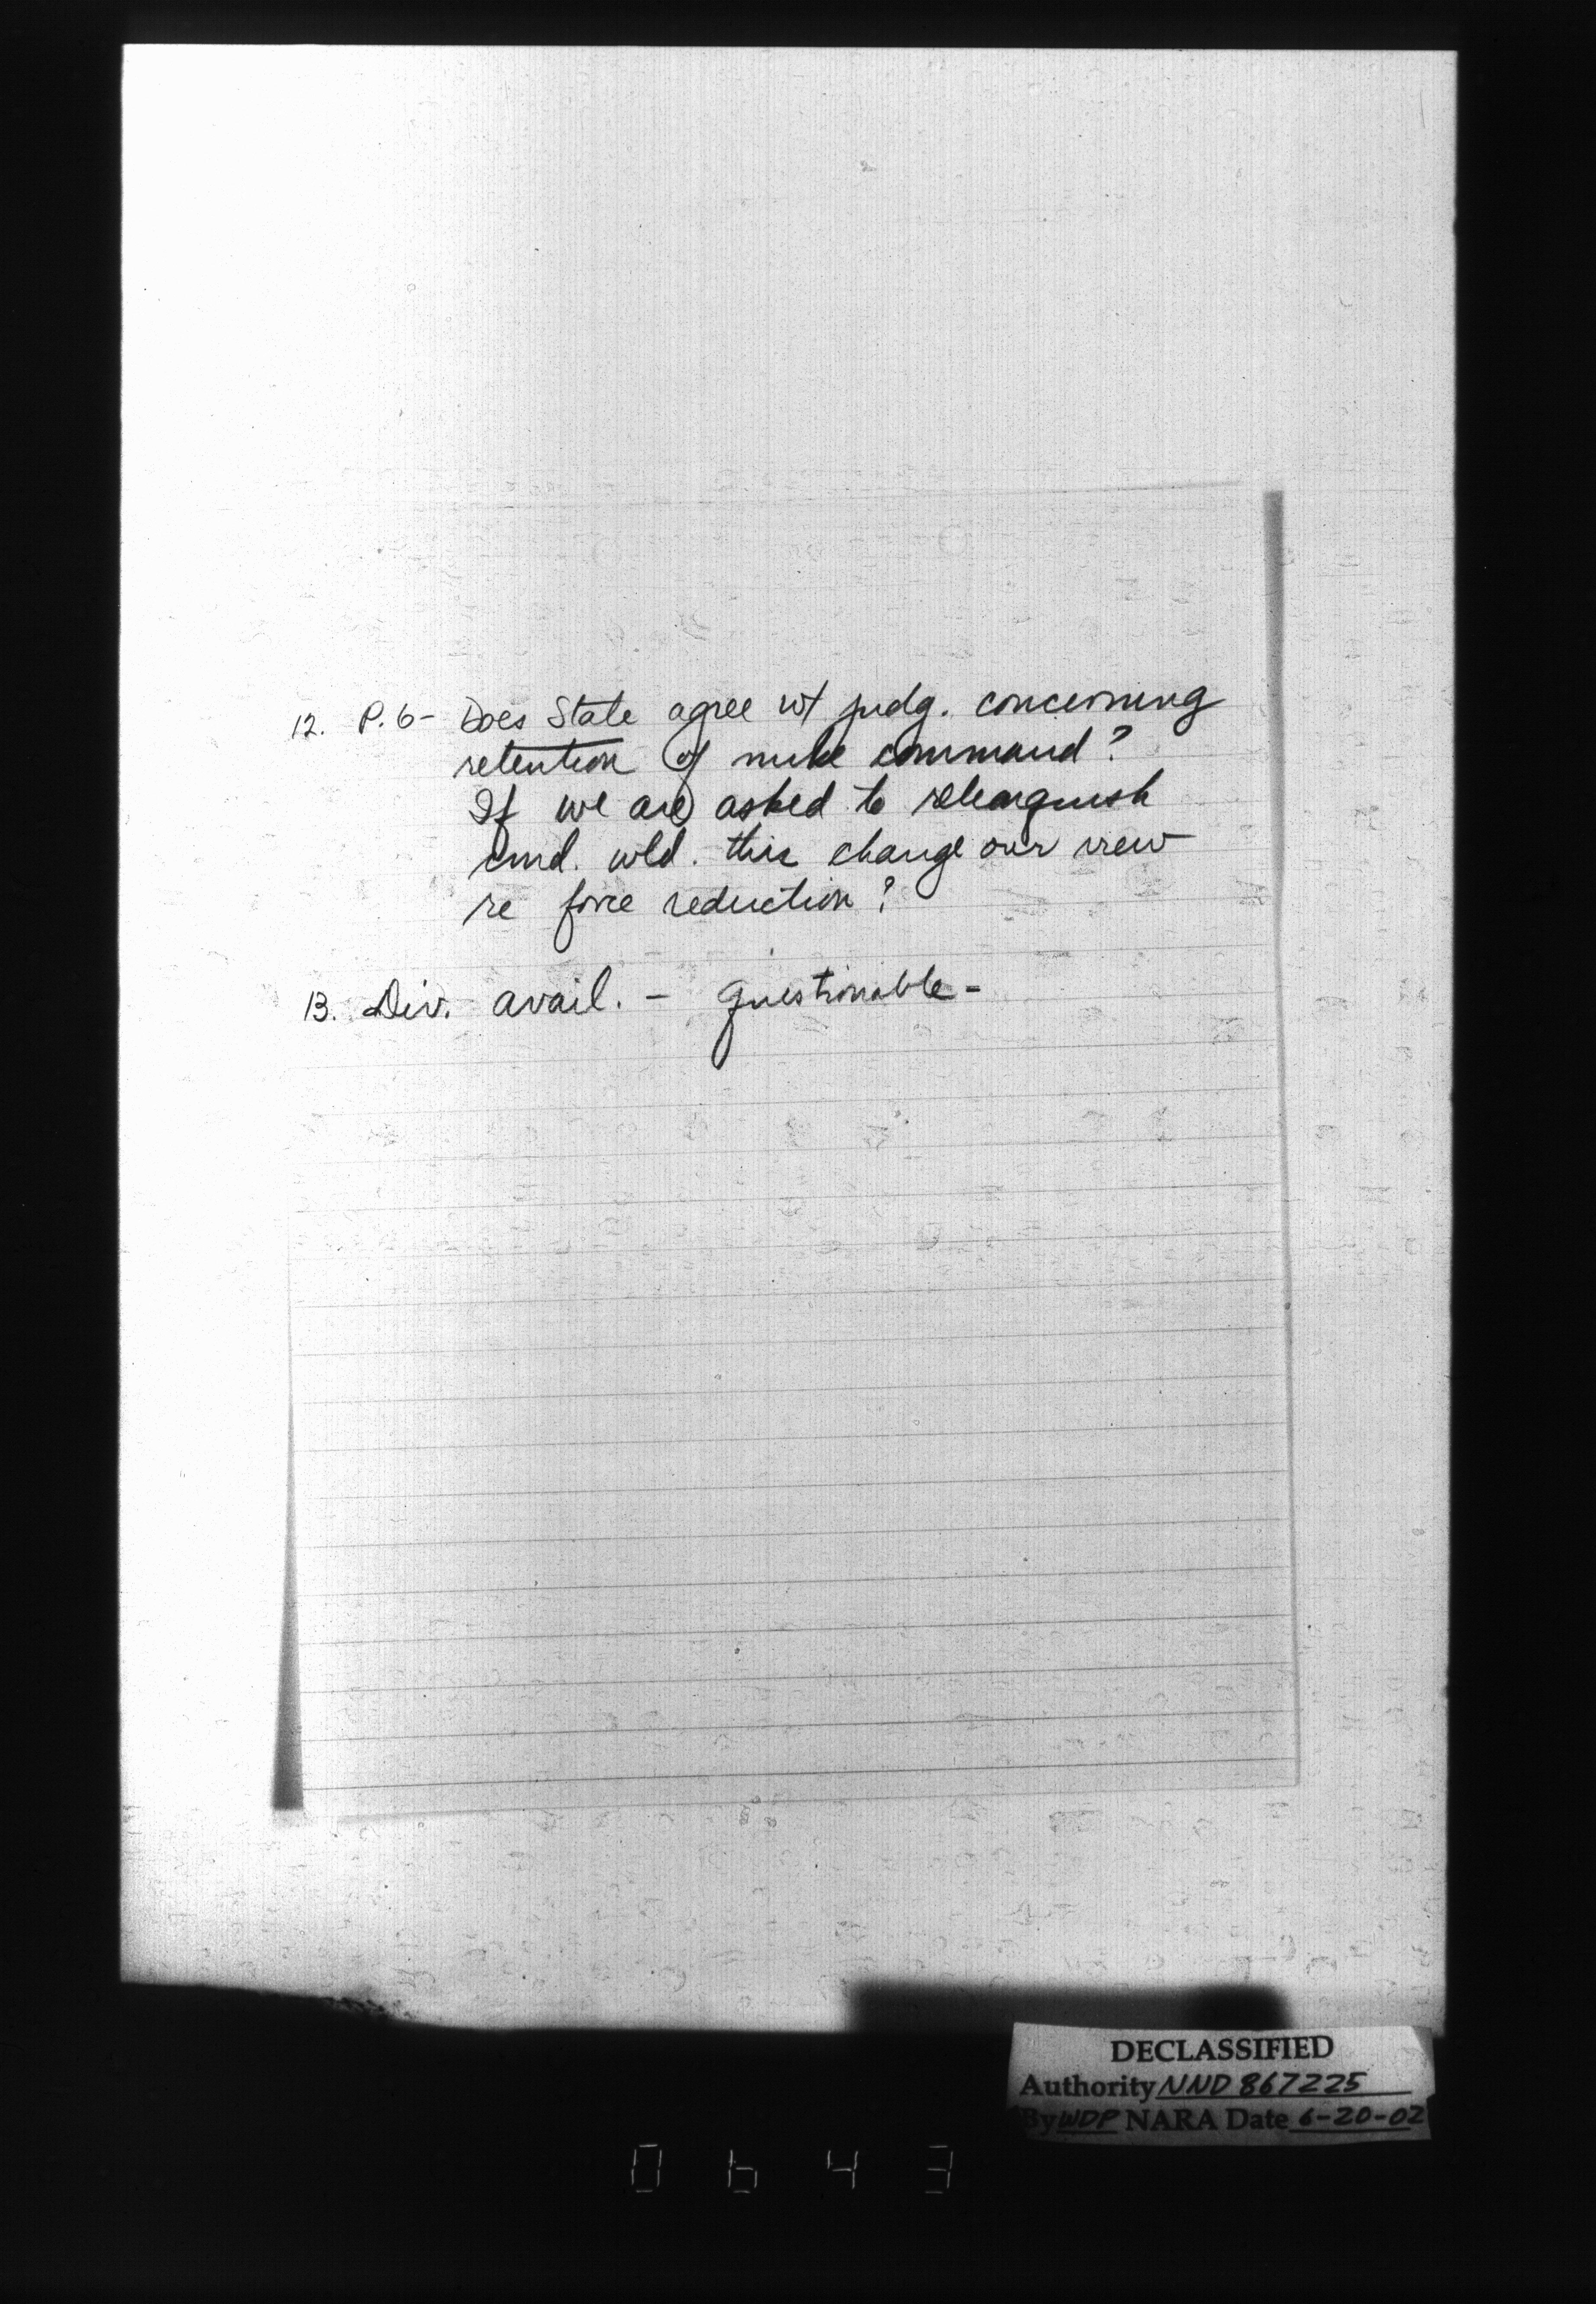 12. P. 6 - Does State agree wt judg. concerning
retention of nuke command?
If we are asked to relenquish
cmd. wld. this change our view
re force reduction?
13. Div. avail. - questionable -
DECLASSIFIED
Authority NND 867225
By WDP NARA Date 6-20-02
0643